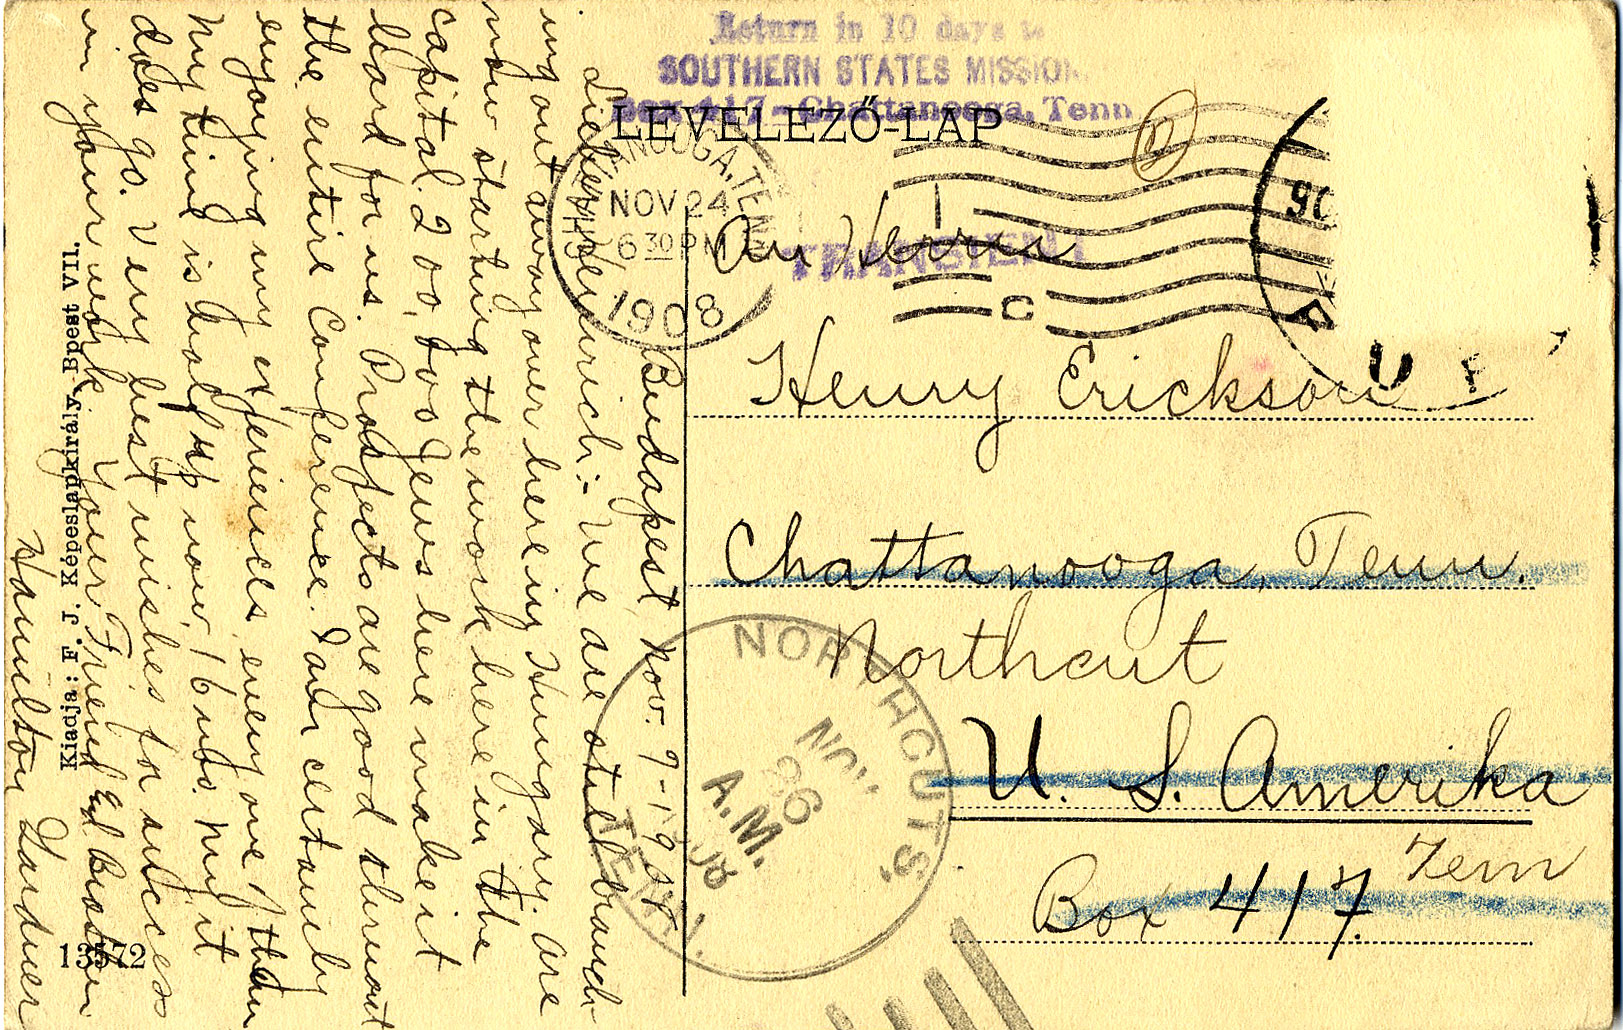 Return in 10 days to
SOUTHERN STATES MISSION
Box 417 - Chattanooga, Tenn
LEVELEZŐ-LAP
CHATTANOOGA, TENN
NOV 24
6 30 PM
1908
TRANSIENT
C
U
An Herrn
Henry Erickson
Chattanooga, Tenn.
Northcut
U. S. Amerika
Tenn
Box 417.
NORTHCUTS, TENN.
NOV.
26
A.M.
1908
Budapest, Nov. 9-1908
Lieber Heinrich:- We are still branch-
ing out away over here in Hungary. Are
now starting the work here in the
capital. 200,000 Jews here make it
hard for us. Prospects are good thruout
the entire Conference. I am certainly
enjoying my experiences every one of them
My time is half up now, 16 mos. My it
does go. Very best wishes for success
in your work. Your Friend Ed Broberin
Hamilton Gardner
Kiadja: F. J. Képeslapkirály, Bpest VII.
13572